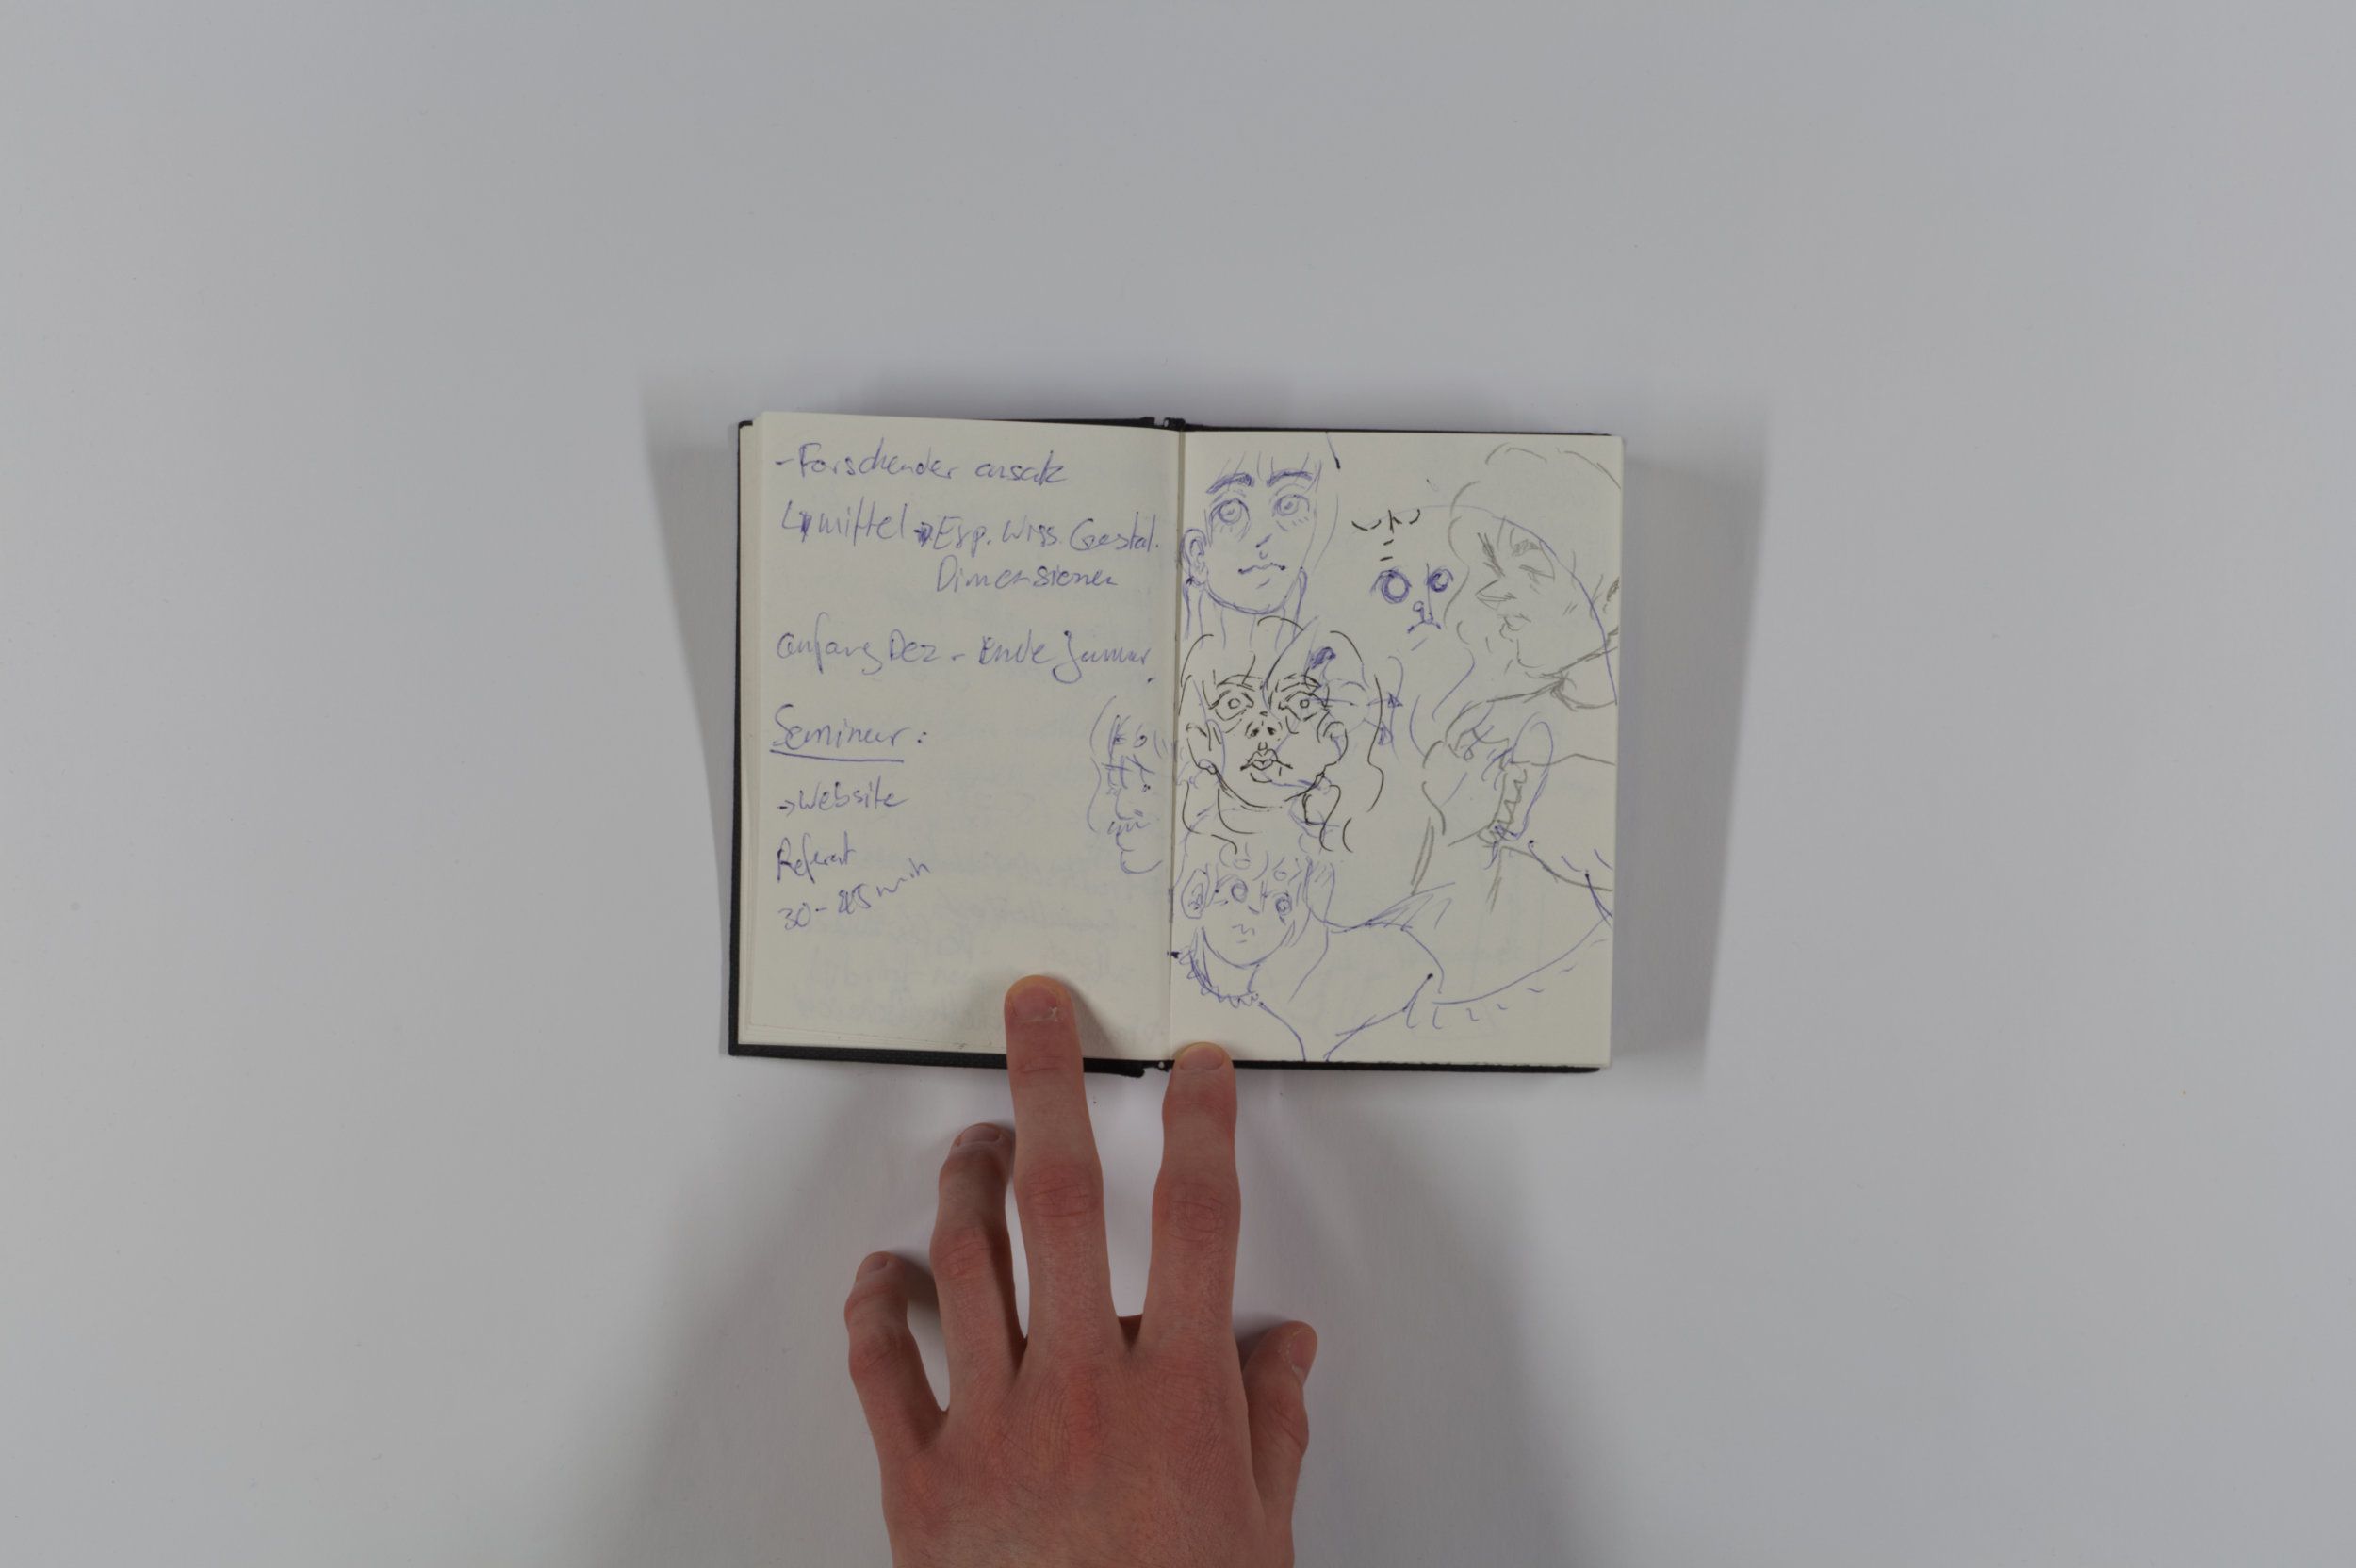 - Forschender ansatz
↳ mittel → Esp. Wiss. Gestal.
Dimensionen
anfang Dez - Ende Januar.
Seminar:
→ Website
Referat
30 - 45 min